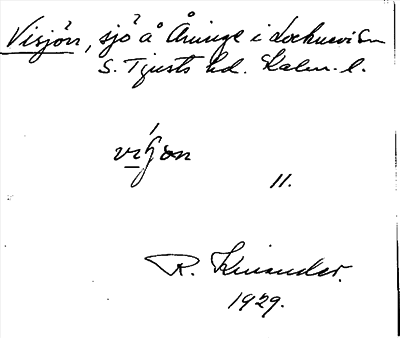 Visjön, sjö å Åninge i Locknevi sn
S. Tjusts hd. Kalm. l.
11.
R. Kinander.
1929.